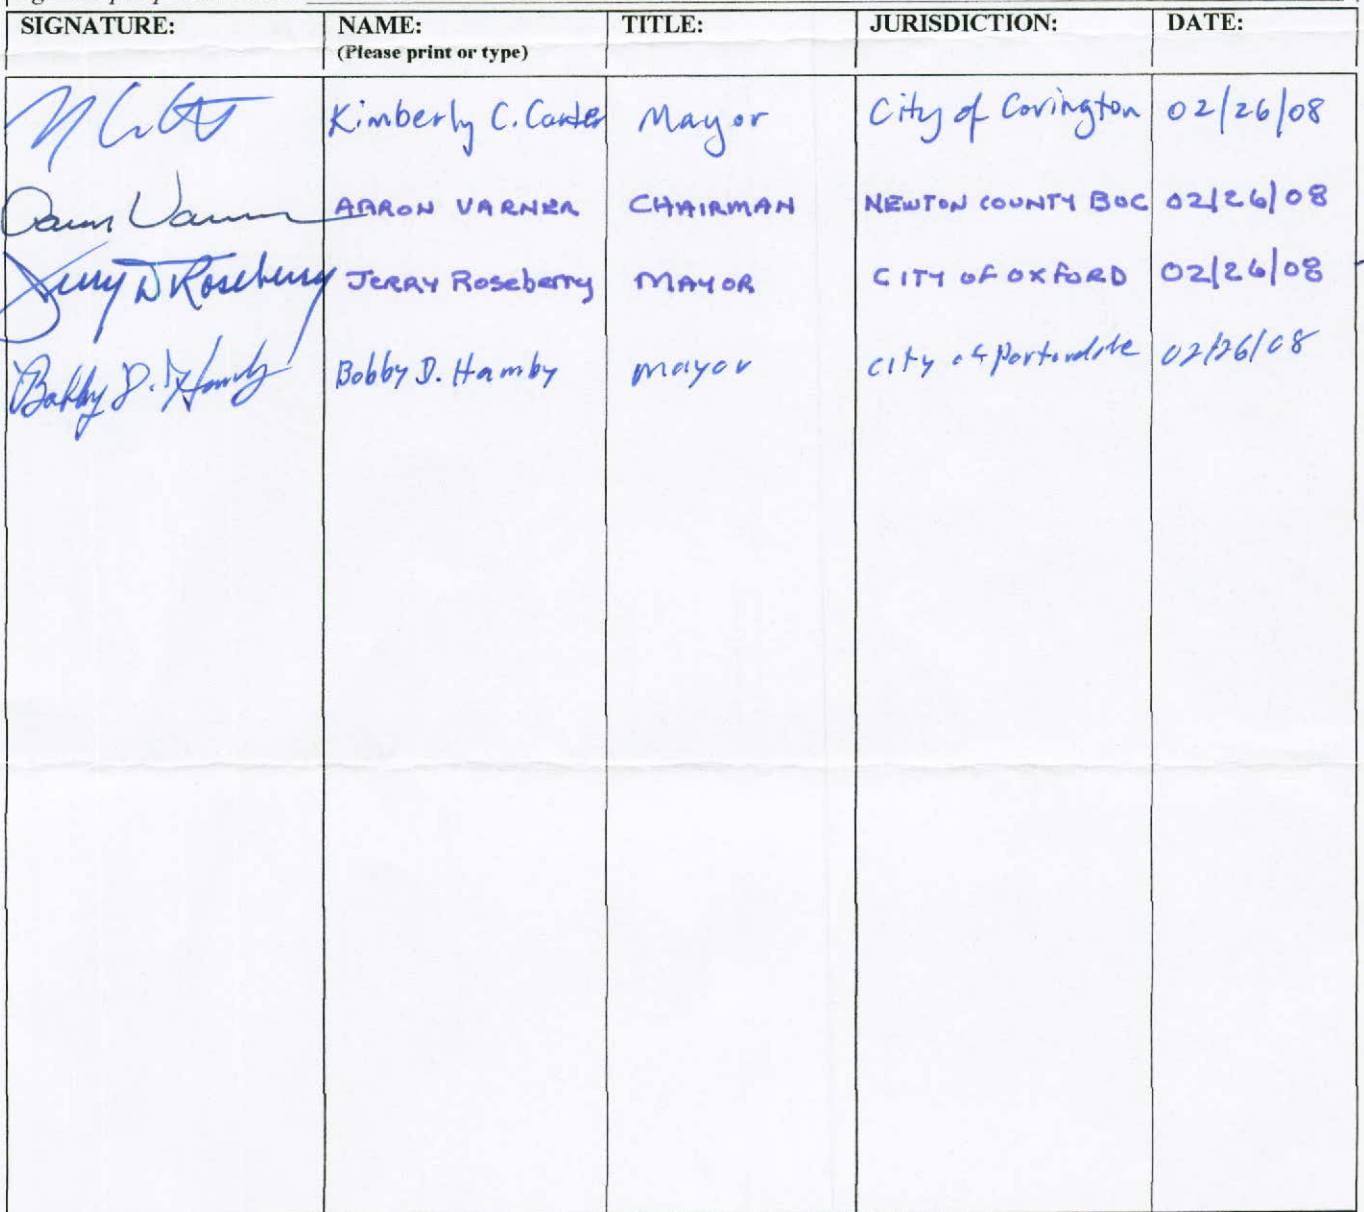 SIGNATURE: NAME: TITLE: JURISDICTION: DATE:
(Please print or type)
Kimberly C. Carter Mayor City of Covington 02/26/08
AARON VARNER CHAIRMAN NEWTON COUNTY BOC 02/26/08
Jerry D Roseberry JERRY Roseberry MAYOR CITY OF OXFORD 02/26/08
Bobby D. Hamby Bobby D. Hamby mayor city of Porterdale 02/26/08